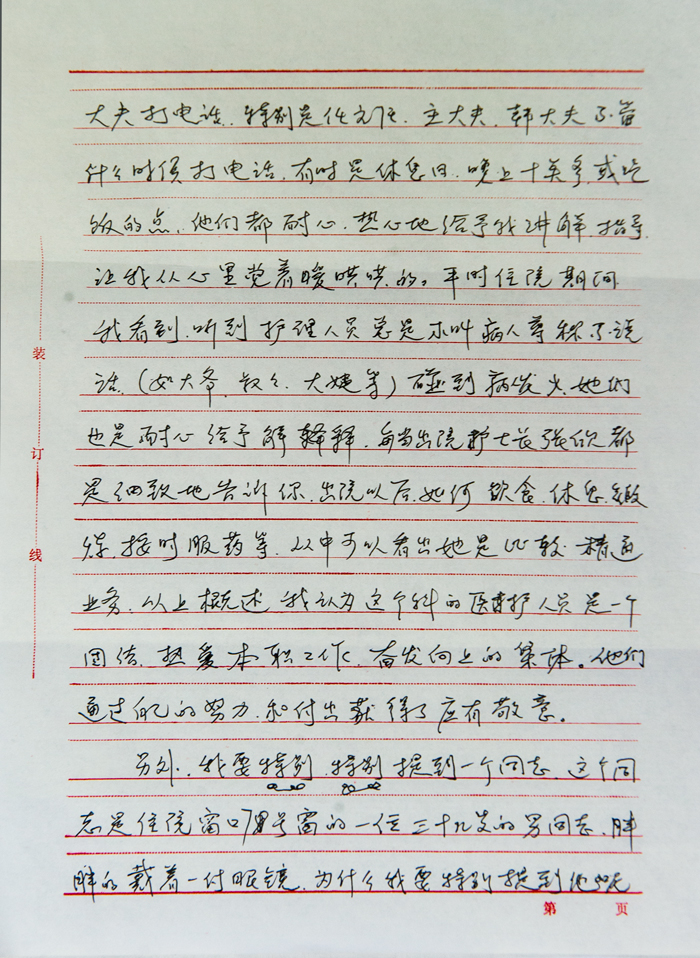 大夫打电话、特别是任主任、主大夫、韩大夫不管
什么时侯打电话、有时是休息日、晚上十美多、或吃
饭的点、他们都耐心、热心地给予我讲解、指导、
让我从心里觉着暖哄哄的。平时住院期间
我看到、听到护理人员总是不叫病人尊称不说
话、(如大爷、叔々、大姨等)碰到病发火、她们
也是耐心给予解释释、每当出院护士长张欣都
是细致地告诉你、出院以后、如何饮食、休息、锻
炼、按时服药等、从中可以看出她是比较精通
业务、以上概述、我认为这个科的医护人员是一个
团结、热爱本职工作、奋发向上的集体。他们
通过自己的努力、和付出获得了应有敬意。
另外、我要特别、特别提到一个同志、这个同
志是住院窗口号窗的一位三十几岁的男同志、胖
胖的戴着一付眼镜、为什么我要特别提到他呢
装
订
线
第 页